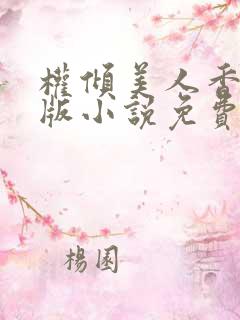 權傾美人香
版小說免費
楊園